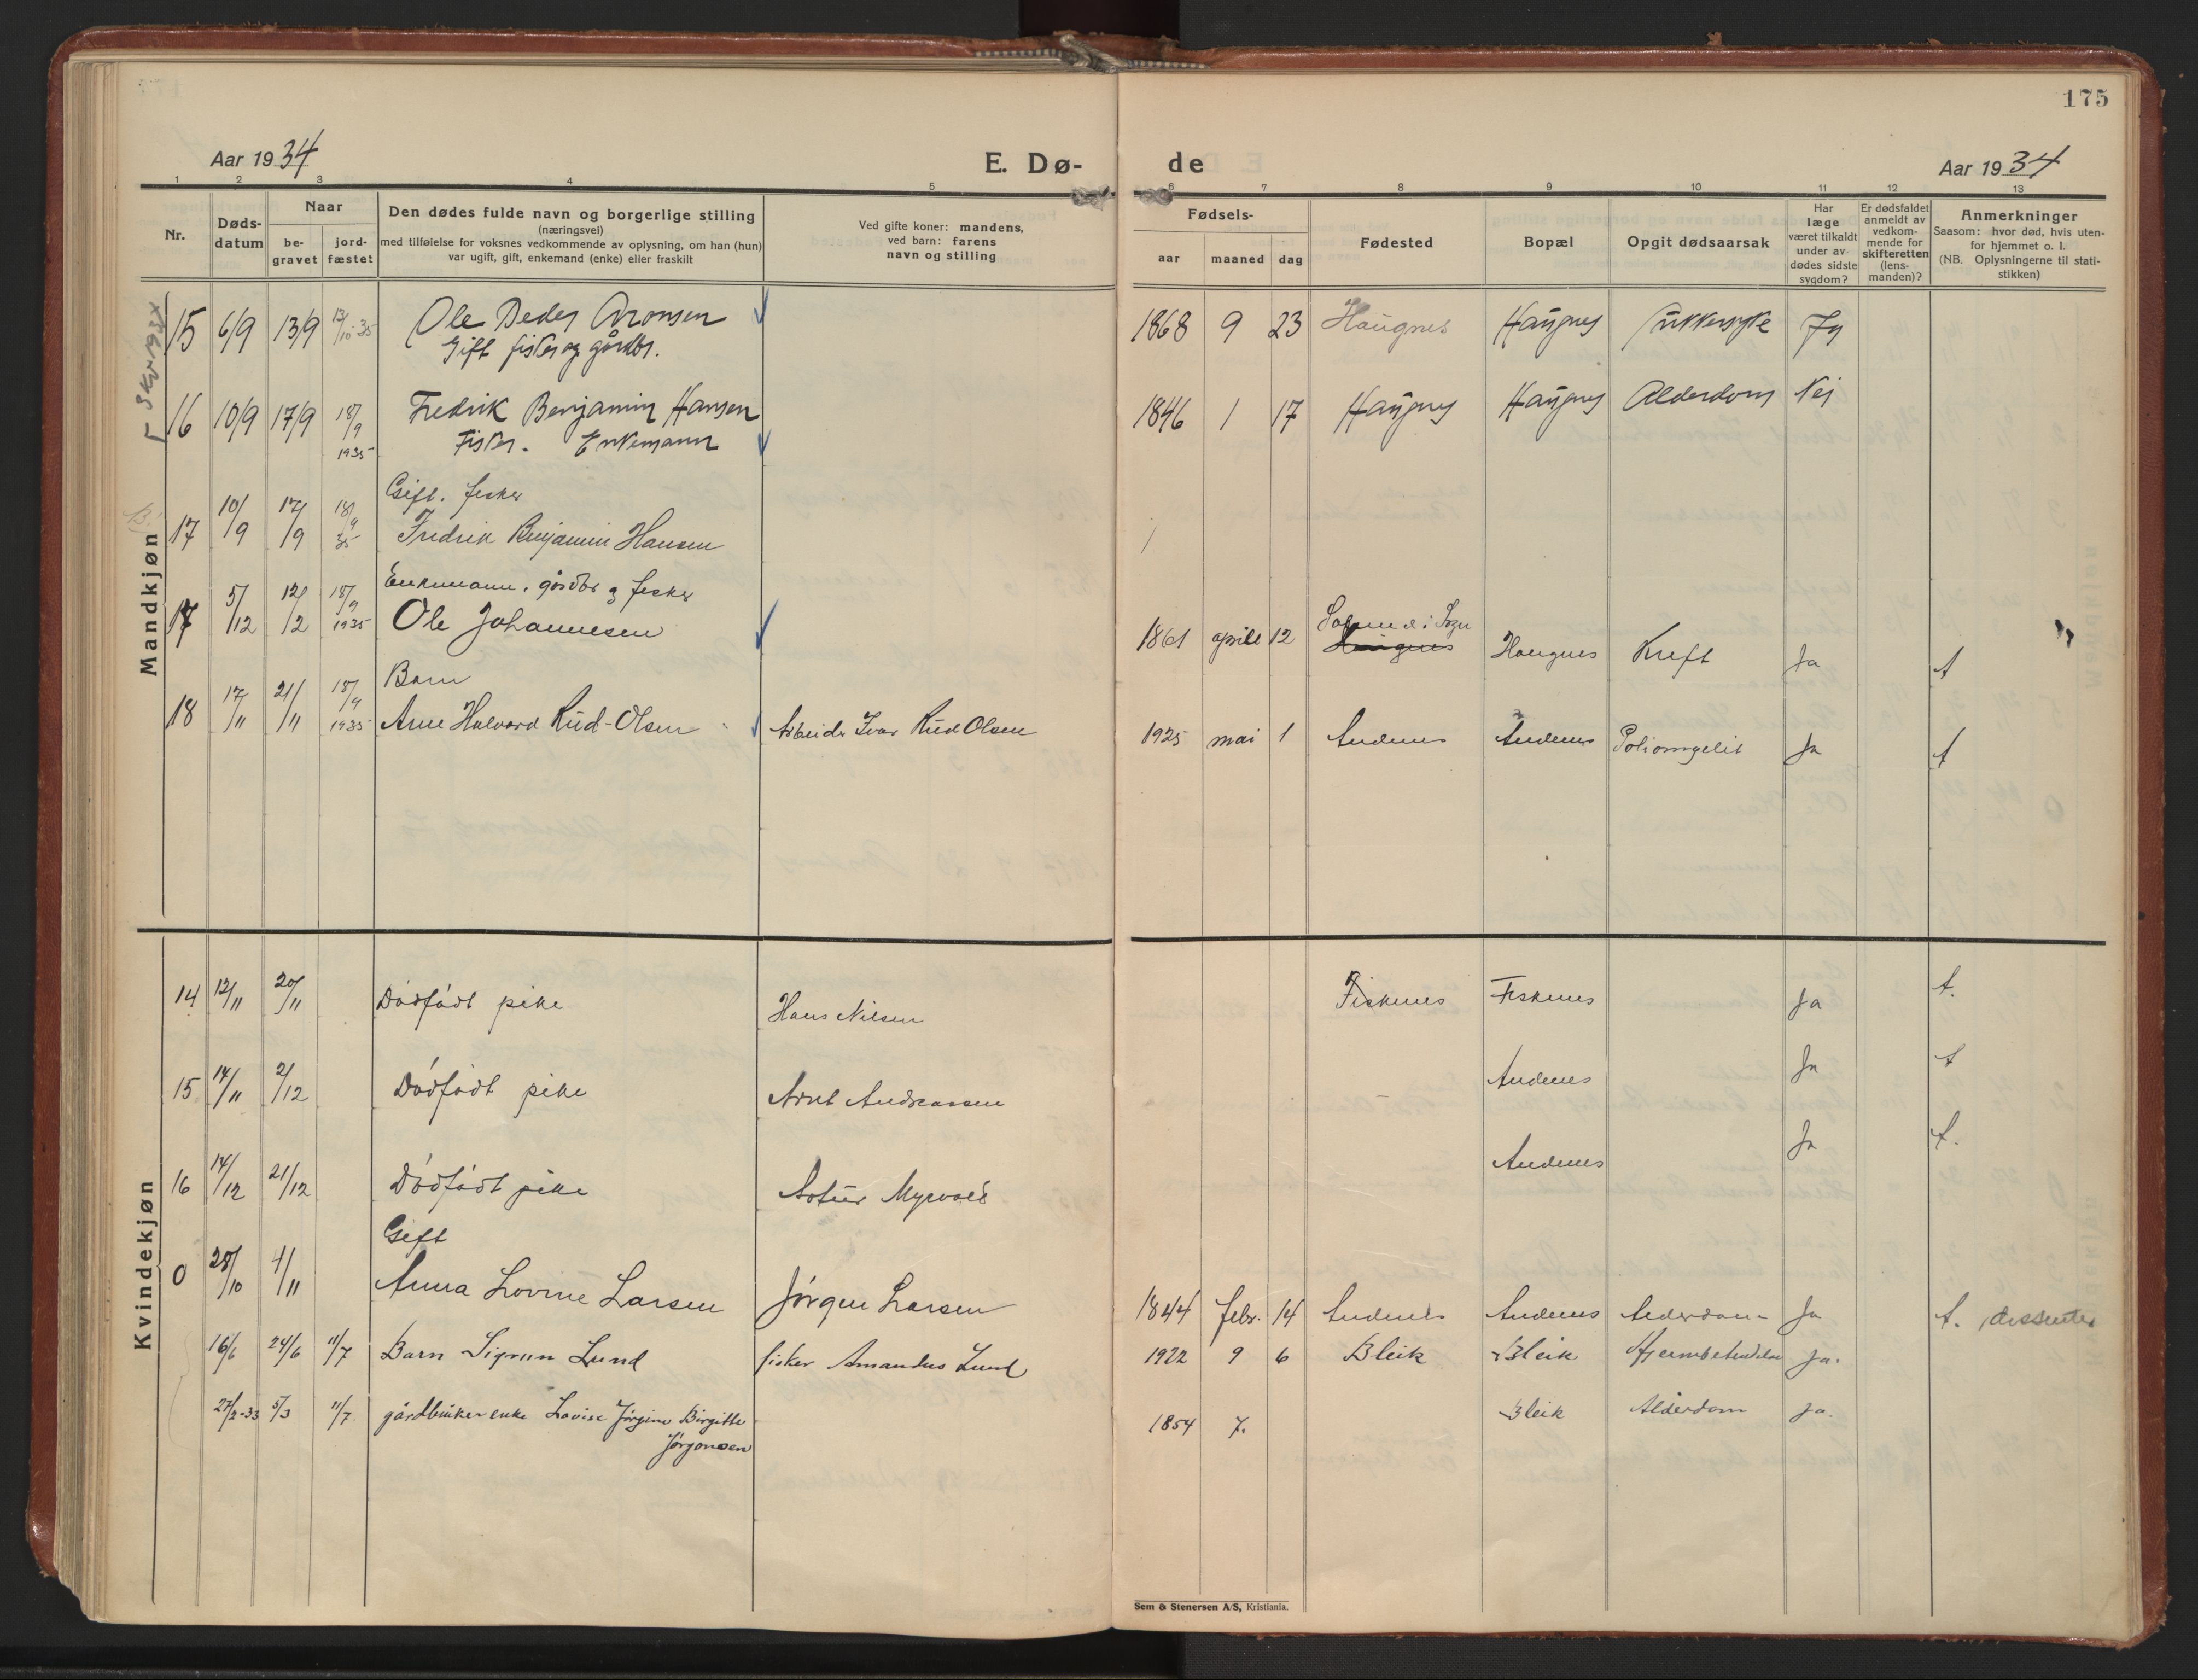 175
Aar 1934
E. Dø-
de
Aar 1934
1 2 3 4 5 6 7 8 9 10 11 12 13
Nr.
Døds-
datum
Naar
be-
gravet
jord-
fæstet
Den dødes fulde navn og borgerlige stilling
(næringsvei)
med tilføielse for voksnes vedkommende av oplysning, om han (hun)
var ugift, gift, enkemand (enke) eller fraskilt
Ved gifte koner: mandens,
ved barn: farens
navn og stilling
Fødsels-
aar maaned dag
Fødested
Bopæl
Opgit dødsaarsak
Har
læge
været tilkaldt
under av-
dødes sidste
sygdom?
Er dødsfaldet
anmeldt av
vedkom-
mende for
skifteretten
(lens-
manden)?
Anmerkninger
Saasom: hvor død, hvis uten-
for hjemmet o. l.
(NB. Oplysningerne til stati-
stikken)
Mandkjøn
15 6/9 13/9 13/10-35 Ole Peder Aronsen 1868 9 23 Haugnes Haugnes Sukkersyke Ja
Gift fisker og gårdbr.
16 10/9 17/9 18/9 1935 Fredrik Benjamin Hansen 1846 1 17 Haugnes Haugnes Alderdom Nei
Fisker. Enkemann
Gift. fisker
17 10/9 17/9 18/9 35 Fredrik Benjamin Hansen
Enkemann. gårdbr og fisker
17 5/12 12/12 18/9 1935 Ole Johannesen 1861 april 12 Haugnes i Sogn Haugnes Kreft Ja A
Barn
18 17/11 21/11 18/9 1935 Arne Halvard Rud-Olsen Arbeider Ivar Rud Olsen 1925 mai 1 Andenes Andenes Poliomyelit Ja A
Kvindekjøn
14 12/11 20/11 Dødfødt pike Hans Nilsen Fiskenes Fiskenes Ja A.
15 14/11 2/12 Dødfødt pike Arnt Andreassen Andenes Ja A
16 14/12 21/12 Dødfødt pike Artur Myrvold Andenes Ja A.
Gift
0 28/10 4/11 Anna Lovine Larsen Jørgen Larsen 1844 febr. 14 Andenes Andenes Alderdom Ja A. dissenter
16/6 24/6 11/7 Barn Sigrun Lund fisker Amandus Lund 1922 9 6 Bleik Bleik Hjernbetendelse Ja.
27/2-33 5/3 11/7 gårdbruker enke Lovise Jørgine Birgitte 1854 7. Bleik Alderdom Ja.
Jørgensen
Sem & Stenersen A/S, Kristiania.